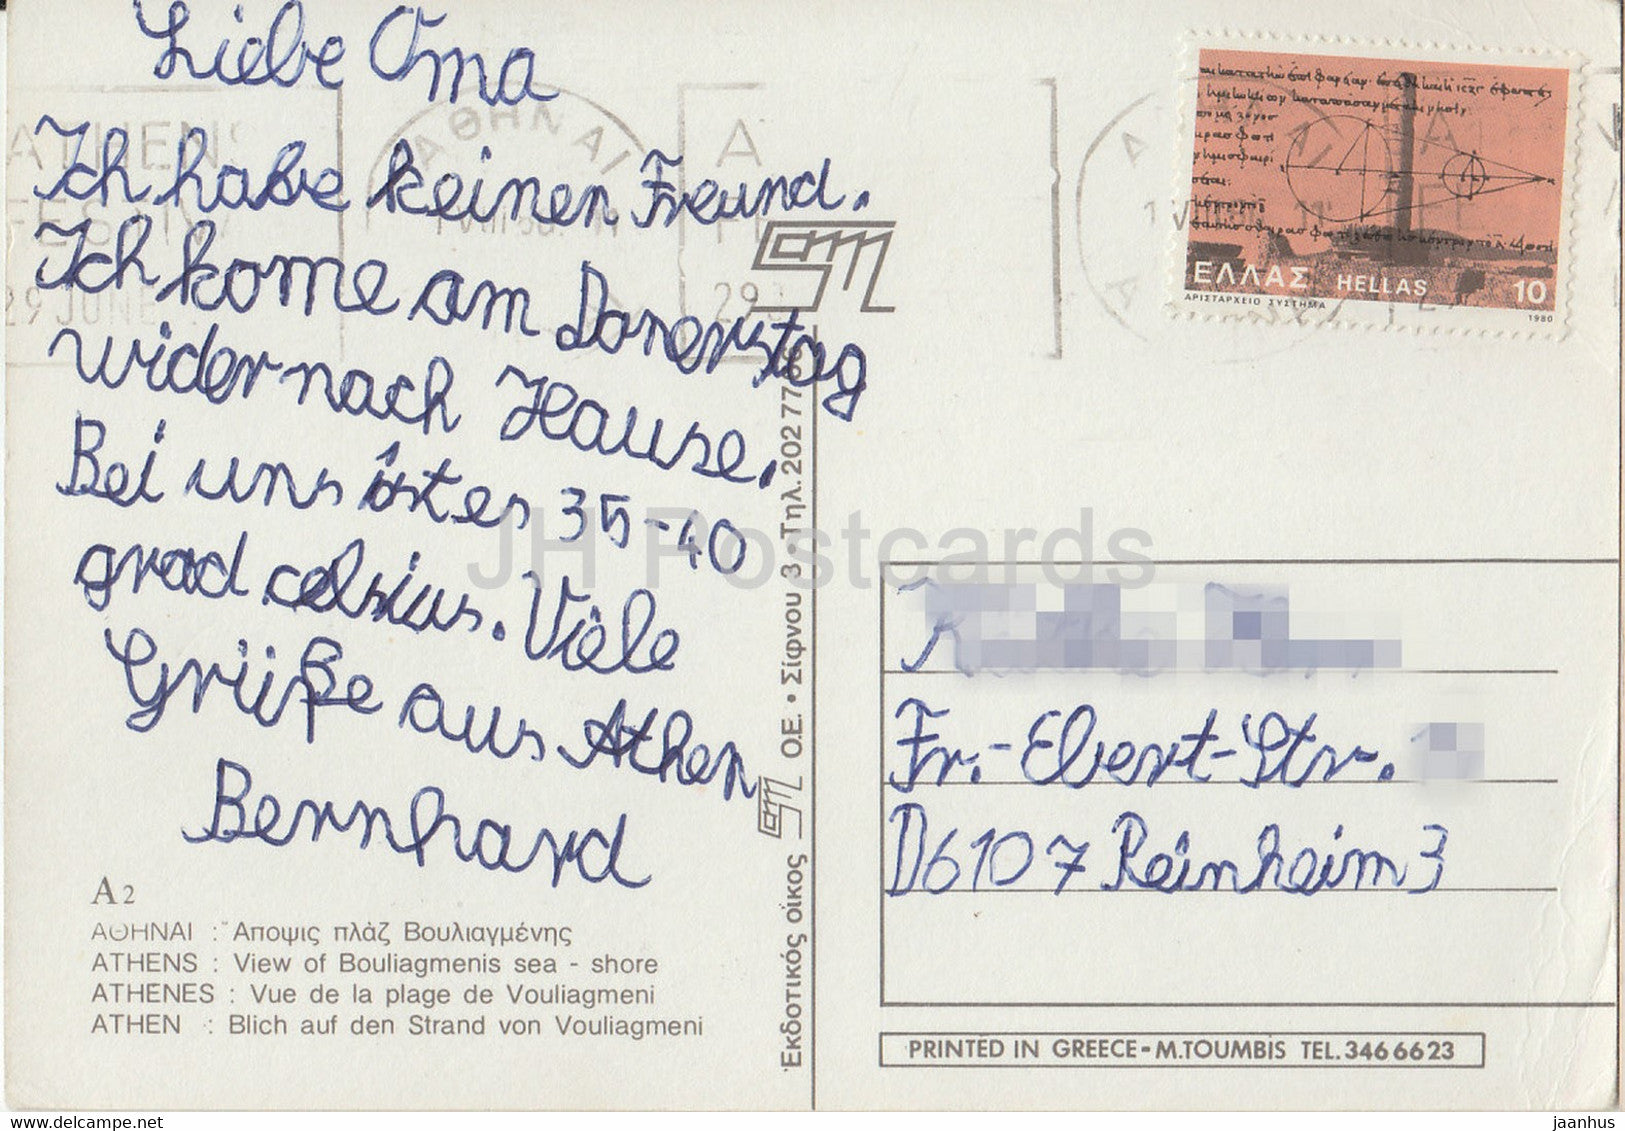 Liebe Oma
Ich habe keinen Freund.
Ich kome am Donerstag
wider nach Hause.
Bei uns ist es 35-40
grad celsius. Viele
Grüße aus Athen
Bernhard
A2
ΑΘΗΝΑΙ : Ἄποψις πλὰζ Βουλιαγμένης
ATHENS : View of Bouliagmenis sea - shore
ATHENES : Vue de la plage de Vouliagmeni
ATHEN : Blich auf den Strand von Vouliagmeni
Ἐκδοτικός οἶκος
Ο.Ε. • Σίφνου 3 Τηλ. 202 77
ΑΘΗΝΑΙ
ATHENS
29 JUNE
ΕΛΛΑΣ HELLAS 10
ΑΡΙΣΤΑΡΧΕΙΟ ΣΥΣΤΗΜΑ
1980
Fr.-Ebert-Str.
D6107 Reinheim 3
PRINTED IN GREECE-M.TOUMBIS TEL.3466623
JH Postcards
www.delcampe.net
jaanhus